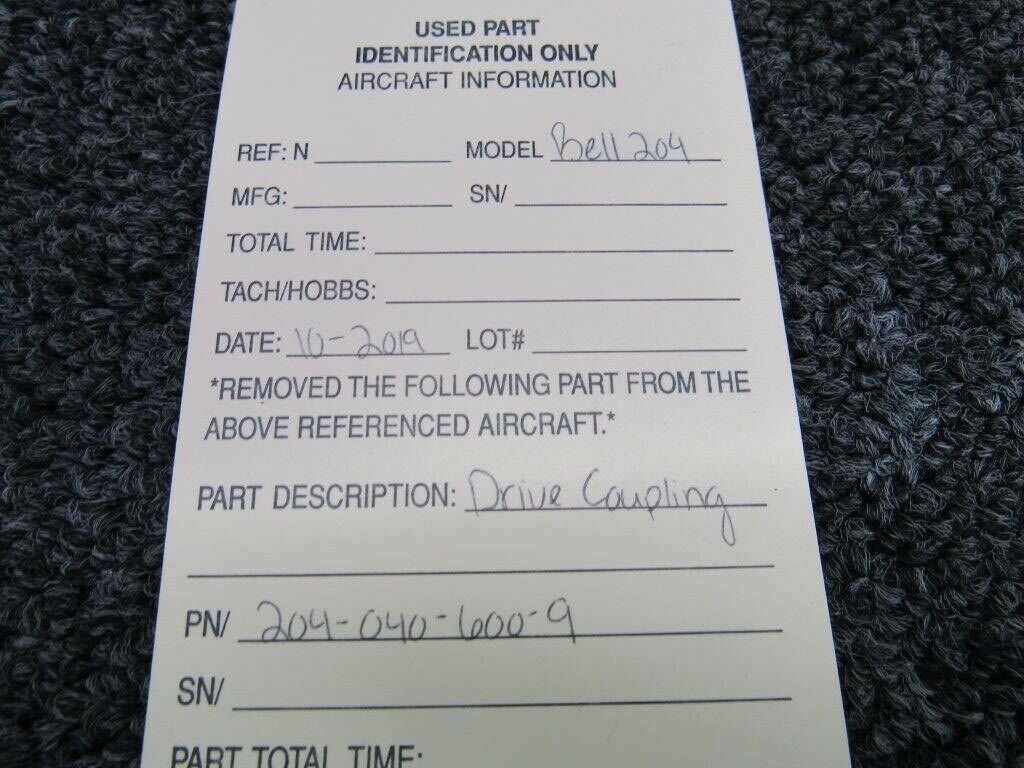 USED PART
IDENTIFICATION ONLY
AIRCRAFT INFORMATION
REF: N MODEL Bell 204
MFG: SN/
TOTAL TIME:
TACH/HOBBS:
DATE: 10-2019 LOT#
*REMOVED THE FOLLOWING PART FROM THE
ABOVE REFERENCED AIRCRAFT.*
PART DESCRIPTION: Drive Coupling
PN/ 204-040-600-9
SN/
PART TOTAL TIME: